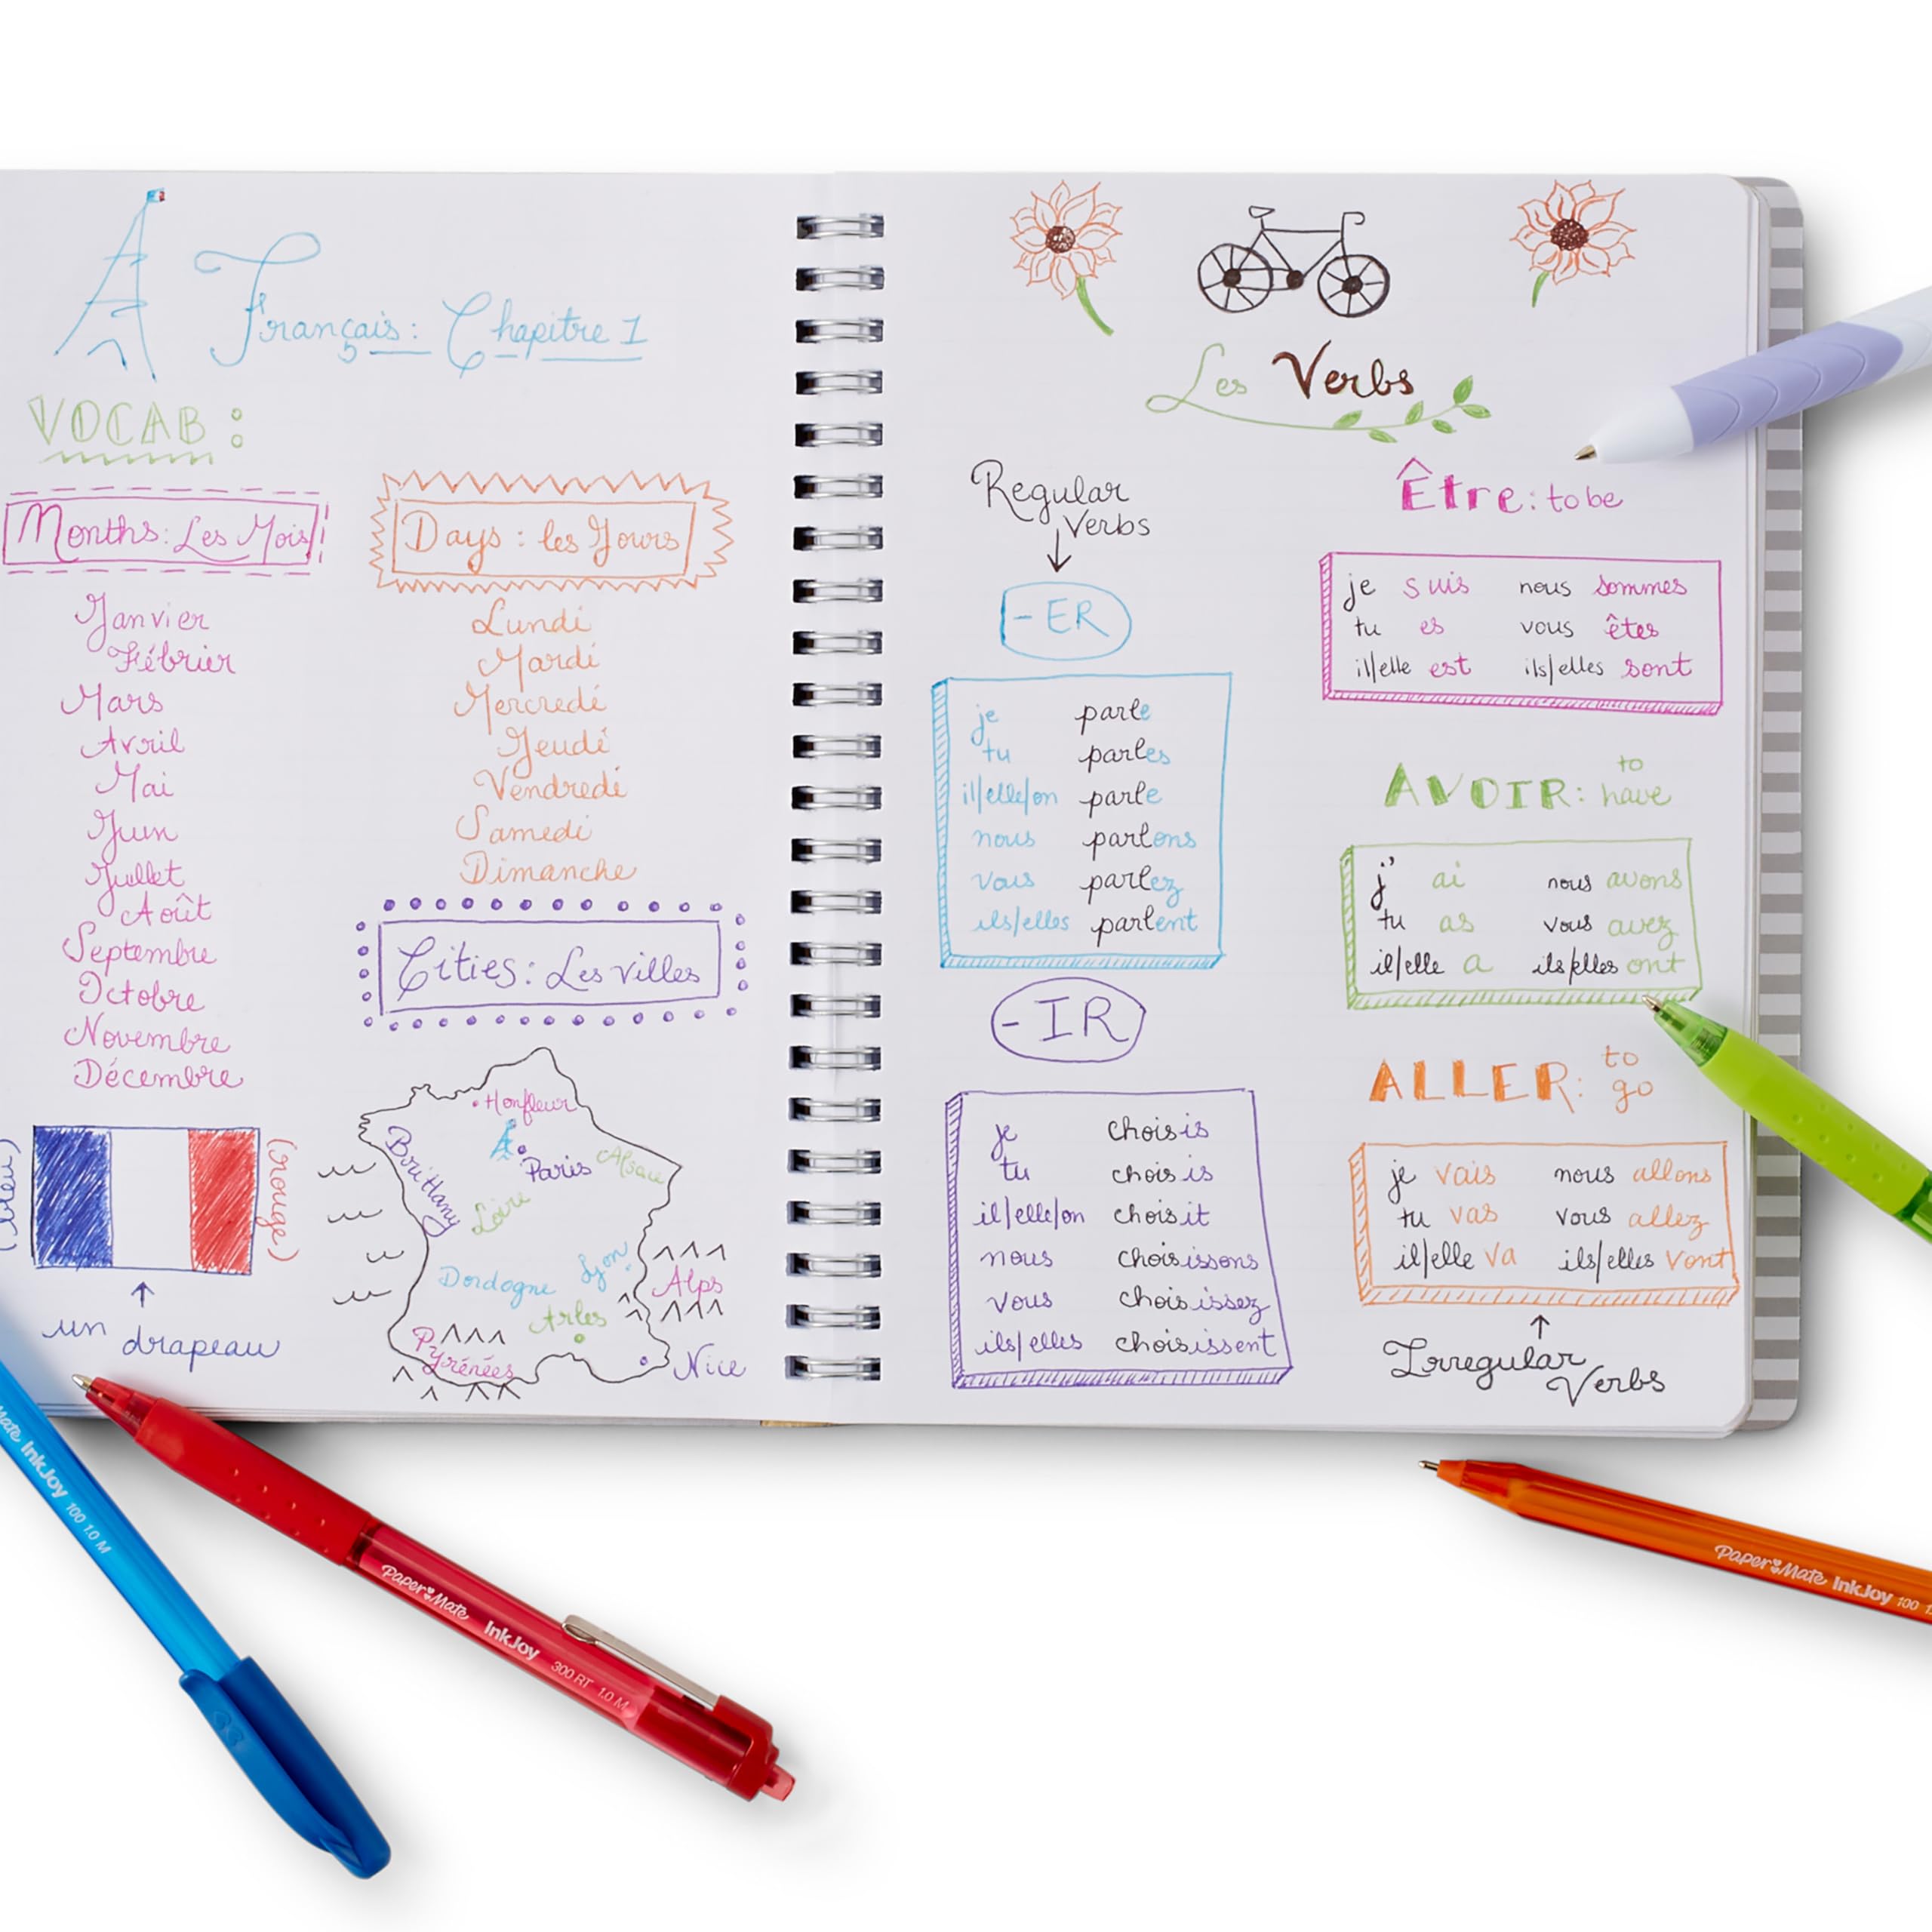 Français: Chapitre 1
VOCAB:
Months: Les Mois
Janvier
Fébrier
Mars
Avril
Mai
Juin
Jullet
Août
Septembre
Octobre
Novembre
Décembre
Days: les Jours
Lundi
Mardi
Mercredi
Jeudi
Vendredi
Samedi
Dimanche
Cities: Les villes
Honfleur
Paris
Alsace
Brittany
Loire
Dordogne
Lyon
Alps
Arles
Pyrénées
Nice
(bleu)
(rouge)
un drapeau
Les Verbs
Regular
Verbs
-ER
je parle
tu parles
il/elle/on parle
nous parlons
vous parlez
ils/elles parlent
-IR
je choisis
tu choisis
il/elle/on choisit
nous choisissons
vous choisissez
ils/elles choisissent
Être: to be
je suis nous sommes
tu es vous êtes
il/elle est ils/elles sont
AVOIR: to
have
j' ai nous avons
tu as vous avez
il/elle a ils/elles ont
ALLER: to
go
je vais nous allons
tu vas vous allez
il/elle va ils/elles vont
Irregular
Verbs
Mate InkJoy 100 1.0 M
Paper Mate InkJoy 300 RT 1.0 M
Paper Mate InkJoy 100 1.